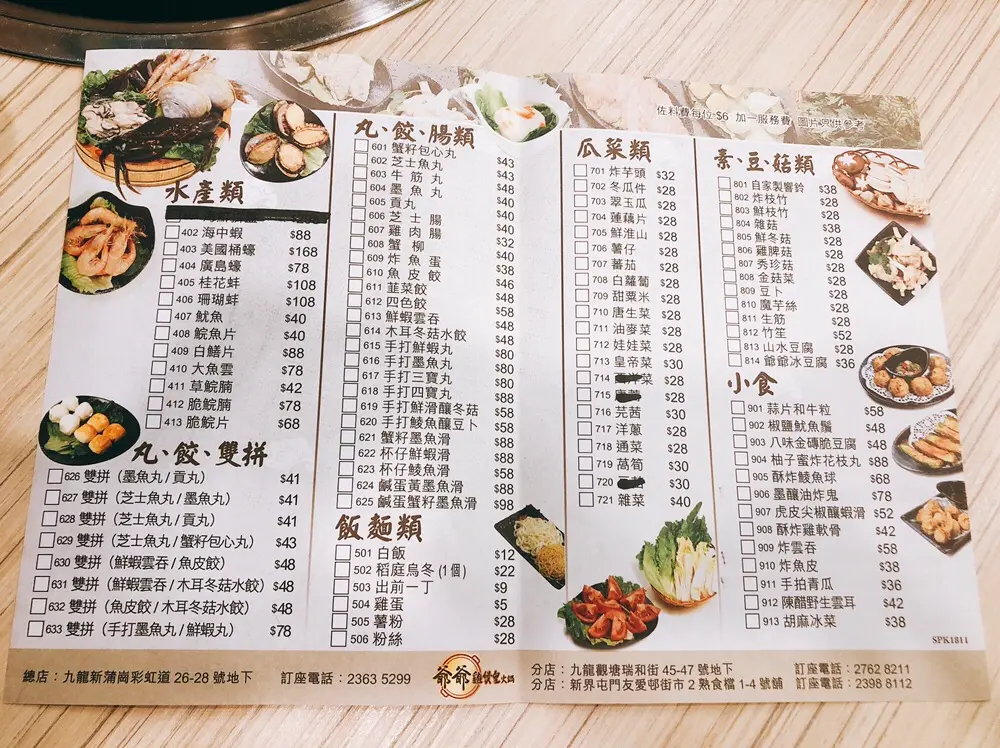 佐料費每位 $6 加一服務費, 圖片只供參考
水產類
402 海中蝦 $88
403 美國桶蠔 $168
404 廣島蠔 $78
405 桂花蚌 $108
406 珊瑚蚌 $108
407 魷魚 $40
408 鯇魚片 $40
409 白鱔片 $88
410 大魚雲 $78
411 草鯇腩 $42
412 脆鯇腩 $78
413 脆鯇片 $68
丸、餃、雙拼
626 雙拼（墨魚丸 / 貢丸） $41
627 雙拼（芝士魚丸 / 墨魚丸） $41
628 雙拼（芝士魚丸 / 貢丸） $41
629 雙拼（芝士魚丸 / 蟹籽包心丸） $43
630 雙拼（鮮蝦雲吞 / 魚皮餃） $48
631 雙拼（鮮蝦雲吞 / 木耳冬菇水餃） $48
632 雙拼（魚皮餃 / 木耳冬菇水餃） $48
633 雙拼（手打墨魚丸 / 鮮蝦丸） $78
丸、餃、腸類
601 蟹籽包心丸 $43
602 芝士魚丸 $43
603 牛筋丸 $43
604 墨魚丸 $48
605 貢丸 $40
606 芝士腸 $40
607 雞肉腸 $40
608 蟹柳 $32
609 炸魚蛋 $40
610 魚皮餃 $38
611 韮菜餃 $46
612 四色餃 $48
613 鮮蝦雲吞 $58
614 木耳冬菇水餃 $48
615 手打鮮蝦丸 $80
616 手打墨魚丸 $80
617 手打三寶丸 $80
618 手打四寶丸 $88
619 手打鮮滑釀冬菇 $58
620 手打鯪魚釀豆卜 $58
621 蟹籽墨魚滑 $88
622 杯仔鮮蝦滑 $88
623 杯仔鯪魚滑 $58
624 鹹蛋黃墨魚滑 $88
625 鹹蛋蟹籽墨魚滑 $98
飯麵類
501 白飯 $12
502 稻庭烏冬 (1個) $22
503 出前一丁 $9
504 雞蛋 $5
505 薯粉 $28
506 粉絲 $28
瓜菜類
701 炸芋頭 $32
702 冬瓜件 $28
703 翠玉瓜 $28
704 蓮藕片 $28
705 鮮淮山 $28
706 薯仔 $28
707 蕃茄 $28
708 白蘿蔔 $28
709 甜粟米 $28
710 唐生菜 $28
711 油麥菜 $28
712 娃娃菜 $28
713 皇帝菜 $30
714 菜 $28
715 $28
716 芫茜 $30
717 洋蔥 $28
718 通菜 $28
719 萵筍 $30
720 $30
721 雜菜 $40
素、豆、菇類
801 自家製響鈴 $38
802 炸枝竹 $28
803 鮮枝竹 $28
804 雜菇 $38
805 鮮冬菇 $28
806 雞脾菇 $28
807 秀珍菇 $28
808 金菇菜 $28
809 豆卜 $28
810 魔芋絲 $28
811 生筋 $28
812 竹笙 $52
813 山水豆腐 $28
814 爺爺冰豆腐 $36
小食
901 蒜片和牛粒 $58
902 椒鹽魷魚鬚 $48
903 八味金磚脆豆腐 $48
904 柚子蜜炸花枝丸 $88
905 酥炸鯪魚球 $68
906 墨釀油炸鬼 $78
907 虎皮尖椒釀蝦滑 $52
908 酥炸雞軟骨 $42
909 炸雲吞 $58
910 炸魚皮 $38
911 手拍青瓜 $36
912 陳醋野生雲耳 $42
913 胡麻冰菜 $38
SPK1811
總店：九龍新蒲崗彩虹道 26-28 號地下 訂座電話：2363 5299
爺爺雞煲兔火鍋
分店：九龍觀塘瑞和街 45-47 號地下 訂座電話：2762 8211
分店：新界屯門友愛邨街市 2 熟食檔 1-4 號舖 訂座電話：2398 8112